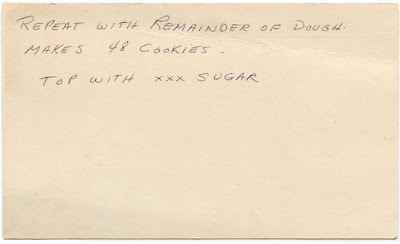 REPEAT WITH REMAINDER OF DOUGH.
MAKES 48 COOKIES.
TOP WITH XXX SUGAR